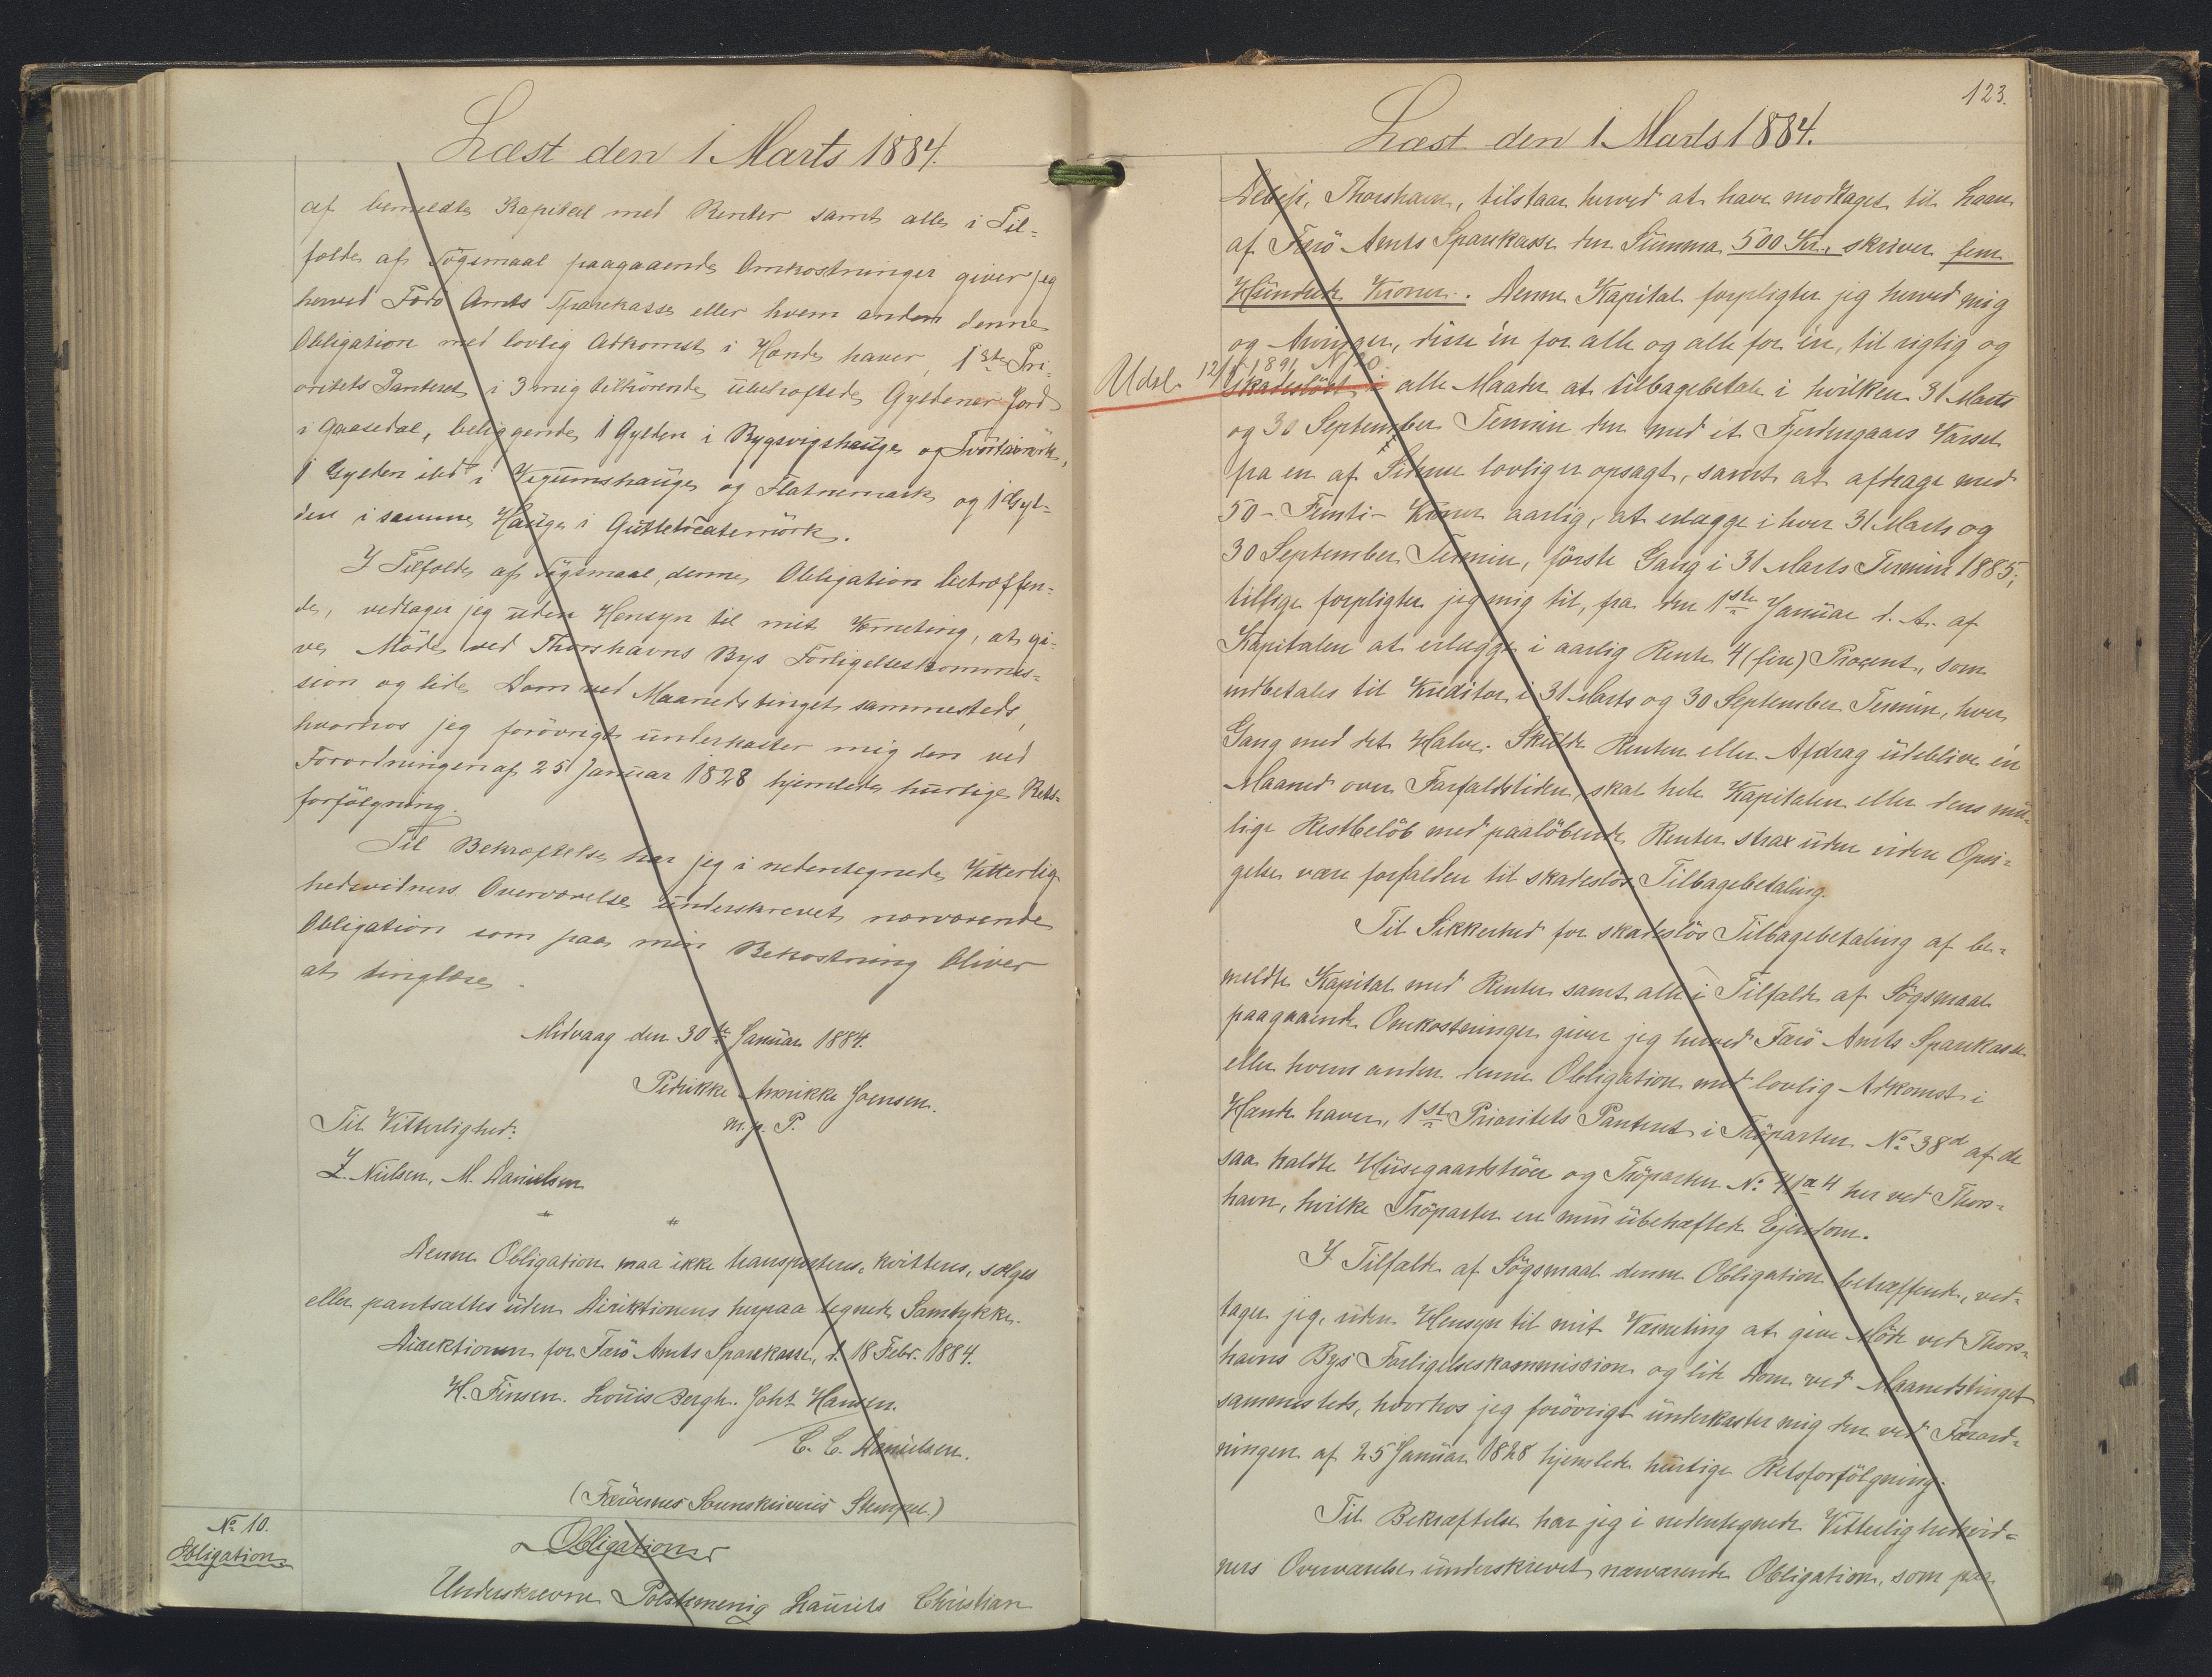 Læst den 1 Marts 1884.
af bemeldte Kapital med Renter samt alle i Til=
fælde af Søgsmaal paagaaende Omkostninger giver jeg
herved Færø Amts Sparekasse eller hvem anden denne
Obligation med lovlig Adkomst i Hænde haver, 1ste Pri=
oritets Panteret i 3 mig tilhørende übehæftede Gyldener Jord
i Gaasedal, beliggende 1 Gylden i Bygsvigshauge og
1 Gylden ibd i Vegumshauge og Flatnemark og 1 Gyl=
den i samme Hauge i
I Tilfælde af Søgsmaal, denne Obligation betræffen=
de, vedtager jeg üden Hensyn til mit Værneting, at gi=
ve Møde ved Thorshavns Bys Forligelseskommis=
sion og lide Dom ved Maanedstinget sammesteds,
hvorhos jeg forøvrigt ünderkaster mig den ved
Forordningen af 25 Januar 1828 hjemlede hurtige Rets=
forfølgning.
Til Bekræftelse har jeg i nedentegnede Vitterlig=
hedsvidners Overværelse ünderskrevet nærværende
Obligation som paa min Bekostning bliver
at tinglæse.
Midvaag den 30te Januar 1884.
Pedrikke Annikke Joensen.
m. p. P.
Til Vitterlighed:
Z. Nielsen, M. Danielsen
Denne Obligation maa ikke transporteres, kvitteres, sælges
eller pantsættes üden Direktionens herpaa tegnede Samtykke.
Direktionen for Færø Amts Sparekasse, d. 18 Febr. 1884.
H. Finsen. Louis Bergh. Joh. Hansen.
C. C. Danielsen.
(Færøernes Sorenskriveris Stempel.)
No 10.
Obligation
Obligation
Underskrevne Politimenig Laurits Christian
123.
Læst den 1 Marts 1884.
Debess, Thorshavn, tilstaar herved at have modtaget til Laan
af Færø Amts Sparekasse den Summa 500 Kr., skriver fem
Hündrede Kroner. Denne Kapital forpligter jeg herved mig
og Arvinger, disse én for alle og alle for én, til rigtig og
Udsl. 12/5 1891 N 20.
skadesløst i alle Maader at tilbagebetale i hvilken 31 Marts
og 30 September Termin den med et Fjerdingaars Varsel
fra en af Siderne lovlig er opsagt, samt at afdrage med
50 - Femti - Kroner aarlig, at erlægge i hver 31 Marts og
30 September Termin, første Gang i 31 Marts Termin 1885;
tillige forpligter jeg mig til, fra den 1ste Januar d. A. af
Kapitalen at erlægge i aarlig Rente 4 (fire) Procent, som
indbetales til Kreditor i 31 Marts og 30 September Termin, hver
Gang med det Halve. Skulde Renten eller Afdrag üdeblive én
Maaned over Forfaldstiden, skal hele Kapitalen eller dens mu=
lige Restbeløb med paaløbende Renter strax üden videre Opsi=
gelse være forfalden til skadesløs Tilbagebetaling.
Til Sikkerhed for skadesløs Tilbagebetaling af be=
meldte Kapital med Renter samt alle i Tilfælde af Søgsmaal
paagaaende Omkostninger giver jeg herved Færø Amts Sparekasse
eller hvem anden denne Obligation med lovlig Adkomst i
Hænde haver, 1ste Prioritets Panteret i Trøparten No 38d af de
saa kaldte Hüsegaardstrøer og Trøparten No 41a4 her ved Thors=
havn, hvilke Trøparter ere min übehæftede Ejendom.
I Tilfælde af Søgsmaal denne Obligation betræffende, ved=
tager jeg, uden Hensyn til mit Værneting at give Møde ved Thors=
havns Bys Forligelseskommission og lide Dom ved Maanedstinget
sammesteds, hvorhos jeg forøvrigt ünderkaster mig den ved Forord=
ningen af 25 Januar 1828 hjemlede hurtige Retsforfølgning.
Til Bekræftelse har jeg i nedentegnede Vitterlighedsvid=
ners Overværelse ünderskrevet nærværende Obligation, som paa